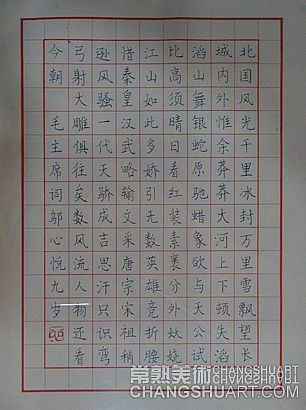 北国风光千里冰封万里雪飘望长
城内外惟余莽莽大河上下顿失滔
滔山舞银蛇原驰蜡象欲与天公试
比高须晴日看红装素裹分外妖娆
江山如此多娇引无数英雄竞折腰
惜秦皇汉武略输文采唐宗宋祖稍
逊风骚一代天骄成吉思汗只识弯
弓射大雕俱往矣数风流人物还看
今朝 毛主席词 邬心悦九岁
常熟美術
CHANGSHUART.COM